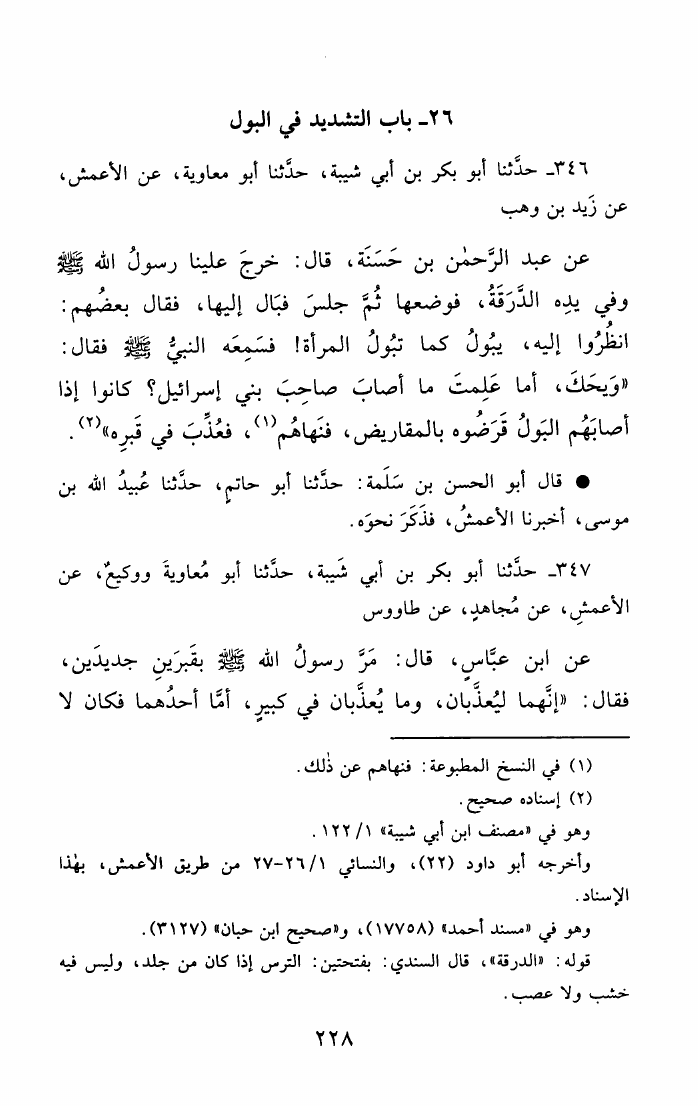 ٢٦ـ باب التشديد في البول
٣٤٦ـ حدَّثنا أبو بكر بن أبي شيبة، حدَّثنا أبو معاوية، عن الأعمش،
عن زَيد بن وهب
عن عبد الرَّحمٰن بن حَسَنَة، قال: خرجَ علينا رسولُ الله ﷺ
وفي يدِه الدَّرَقَةُ، فوضعها ثُمَّ جلسَ فبَال إليها، فقال بعضُهم:
انظُرُوا إليه، يبُولُ كما تبُولُ المرأة! فسَمِعَه النبيُّ ﷺ فقال:
«وَيحَكَ، أما عَلِمتَ ما أصابَ صاحِبَ بني إسرائيل؟ كانوا إذا
أصابَهُم البَولُ قَرَضُوه بالمقاريض، فنَهاهُم(١)، فعُذِّبَ في قَبرِه»(٢).
● قال أبو الحسن بن سَلَمة: حدَّثنا أبو حاتمٍ، حدَّثنا عُبيدُ الله بن
موسى، أخبرنا الأعمشُ، فذَكَرَ نحوَه.
٣٤٧ـ حدَّثنا أبو بكر بن أبي شَيبة، حدَّثنا أبو مُعاويةَ ووكيعٌ، عن
الأعمشِ، عن مُجاهدٍ، عن طاووس
عن ابن عبَّاسٍ، قال: مَرَّ رسولُ الله ﷺ بقَبرَينِ جديدَين،
فقال: «إنَّهما ليُعذَّبان، وما يُعذَّبان في كبيرٍ، أمَّا أحدُهما فكان لا
(١) في النسخ المطبوعة: فنهاهم عن ذٰلك.
(٢) إسناده صحيح.
وهو في «مصنف ابن أبي شيبة» ١/ ١٢٢.
وأخرجه أبو داود (٢٢)، والنسائي ١/ ٢٦-٢٧ من طريق الأعمش، بهٰذا
الإسناد.
وهو في «مسند أحمد» (١٧٧٥٨)، و«صحيح ابن حبان» (٣١٢٧).
قوله: «الدرقة»، قال السندي: بفتحتين: الترس إذا كان من جلد، وليس فيه
خشب ولا عصب.
٢٢٨